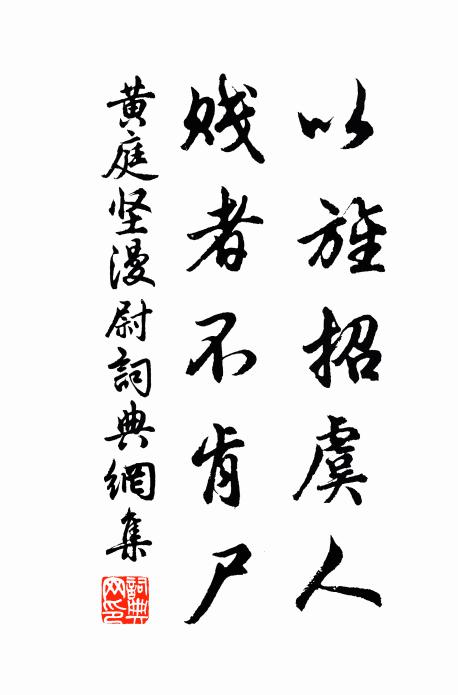 以旌招虞人
贱者不肯尸
黄庭坚漫尉詞典網集
詞典网印